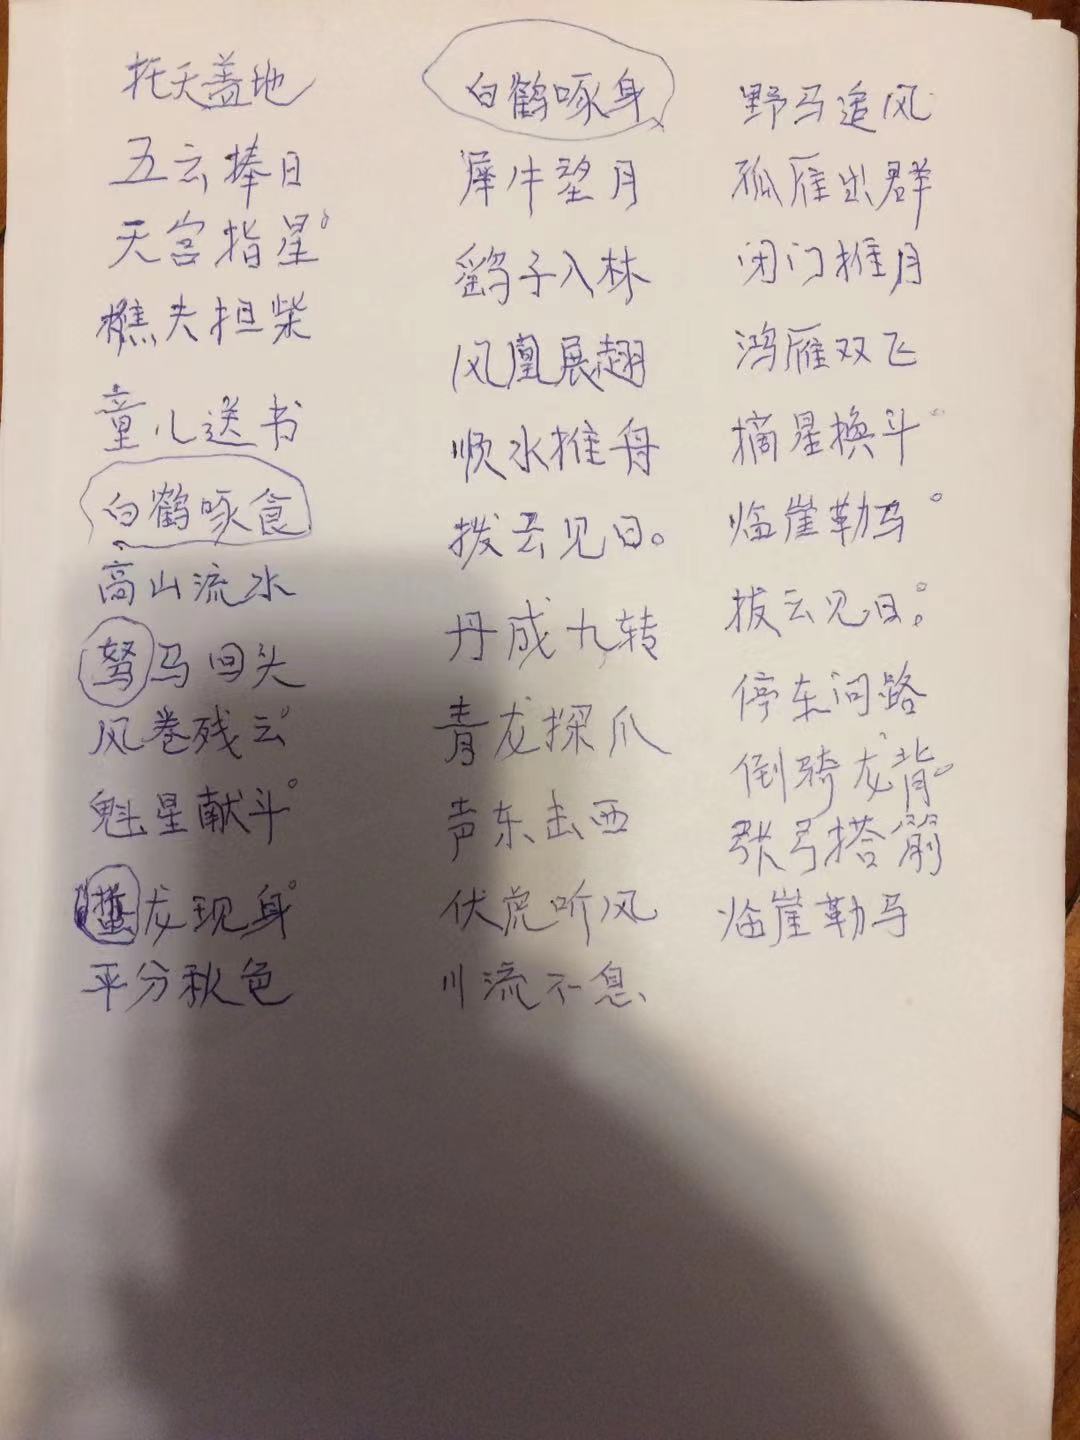 托天盖地
五云捧日
天宫指星。
樵夫担柴
童儿送书
白鹤啄食
高山流水
驽马回头
风卷残云。
魁星献斗。
龙现身。
平分秋色
白鹤啄身
犀牛望月
鹞子入林
风凰展翅
顺水推舟
拨云见日。
丹成九转
青龙探爪
声东击西
伏虎听风
川流不息、
野马追风
孤雁出群
闭门推月
鸿雁双飞
摘星换斗。
临崖勒马。
拔云见日。
停车问路
倒骑龙背。
张弓搭箭
临崖勒马